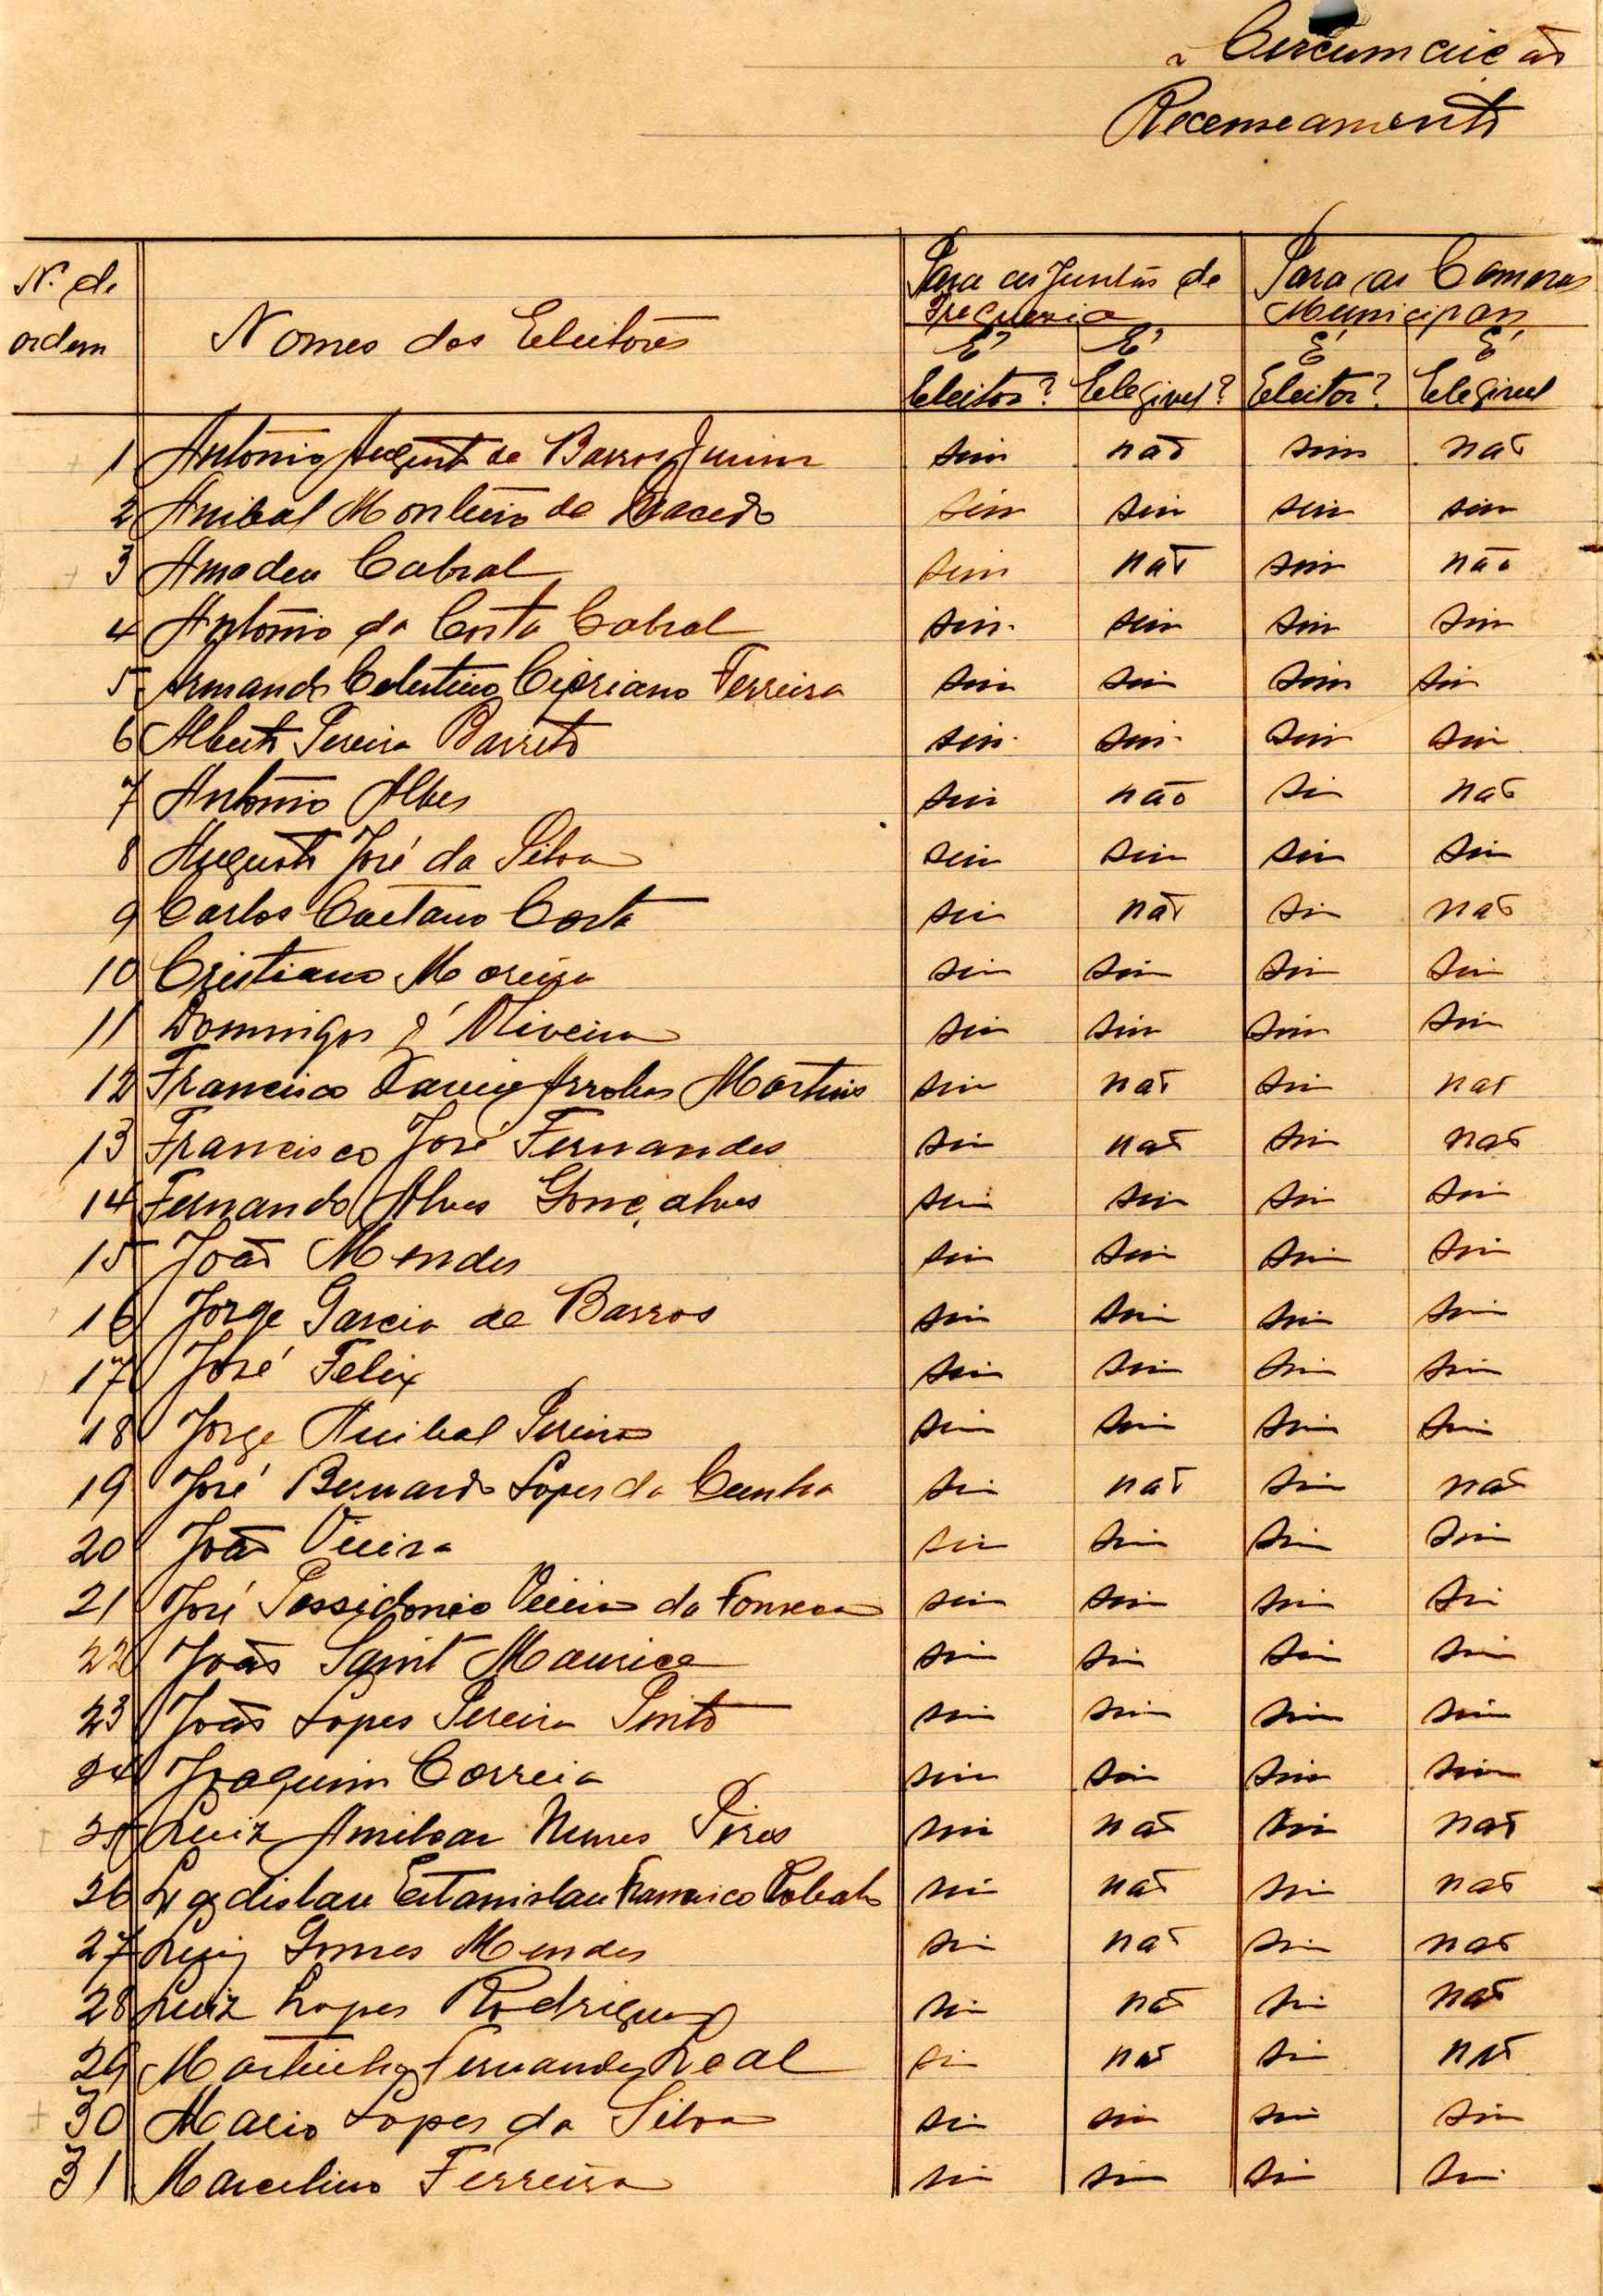 Circumcição
Recenseamento
N. de ordem
Nomes dos Eleitores
Para as Juntas de Freguesia
Para as Camaras Municipaes
É Eleitor? É Elegivel? É Eleitor? É Elegivel
1 Antonio Augusto de Barros Junior sim não sim não
2 Anibal Monteiro de Macedo sim sim sim sim
3 Amadeu Cabral sim não sim não
4 Antonio da Costa Cabral sim sim sim sim
5 Armando Celestino Cipriano Ferreira sim sim sim sim
6 Alberto Pereira Barreto sim sim sim sim
7 Antonio Alves sim não sim não
8 Augusto José da Silva sim sim sim sim
9 Carlos Caetano Costa sim não sim não
10 Cristiano Moreira sim sim sim sim
11 Domingos d'Oliveira sim sim sim sim
12 Francisco Xavier Arrobas Martins sim não sim não
13 Francisco José Fernandes sim não sim não
14 Fernando Alves Gonçalves sim sim sim sim
15 João Mendes sim sim sim sim
16 Jorge Garcia de Barros sim sim sim sim
17 José Felix sim sim sim sim
18 Jorge Anibal Pereira sim sim sim sim
19 José Bernardo Lopes da Cunha sim não sim não
20 João Vieira sim sim sim sim
21 José Possidonio Vieira da Fonseca sim sim sim sim
22 João Saint Maurice sim sim sim sim
23 João Lopes Pereira Pinto sim sim sim sim
24 Joaquim Correia sim sim sim sim
25 Luiz Amilcar Nunes Pires sim não sim não
26 Ladislau Estanislau Francisco Lobato sim não sim não
27 Luiz Gomes Mendes sim não sim não
28 Luiz Lopes Rodrigues sim não sim não
29 Martinho Fernandes Leal sim não sim não
30 Mario Lopes da Silva sim sim sim sim
31 Marcelino Ferreira sim sim sim sim